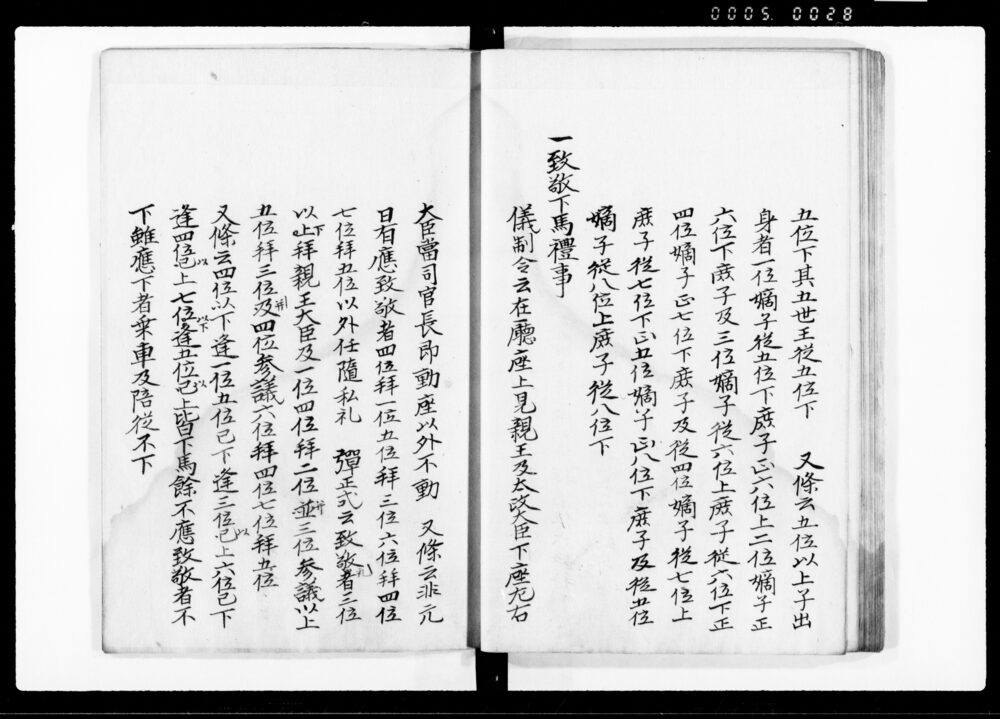 0005. 0028
五位下其五世王從五位下　又條云五位以上子出
身者一位嫡子從五位下庶子正六位上二位嫡子正
六位下庶子及三位嫡子從六位上庶子從六位下正
四位嫡子正七位下庶子及從四位嫡子從七位上
庶子從七位下正五位嫡子正八位下庶子及從五位
嫡子從八位上庶子從八位下
一致敬下馬禮事
儀制令云在廳座上見親王及太政大臣下座左右
大臣當司官長即動座以外不動　又條云非元
日有應致敬者四位拜一位五位拜三位六位拜四位
七位拜五位以外任隨私礼　彈正式云致敬者三位
以上下拜親王大臣及一位四位拜二位並三位參議以上
五位拜三位及四位參議六位拜四位七位拜五位
又條云四位以下逢一位五位已下逢三位已上六位已下
逢四位已上七位逢五位已上皆下馬餘不應致敬者不
下雖應下者乗車及陪從不下